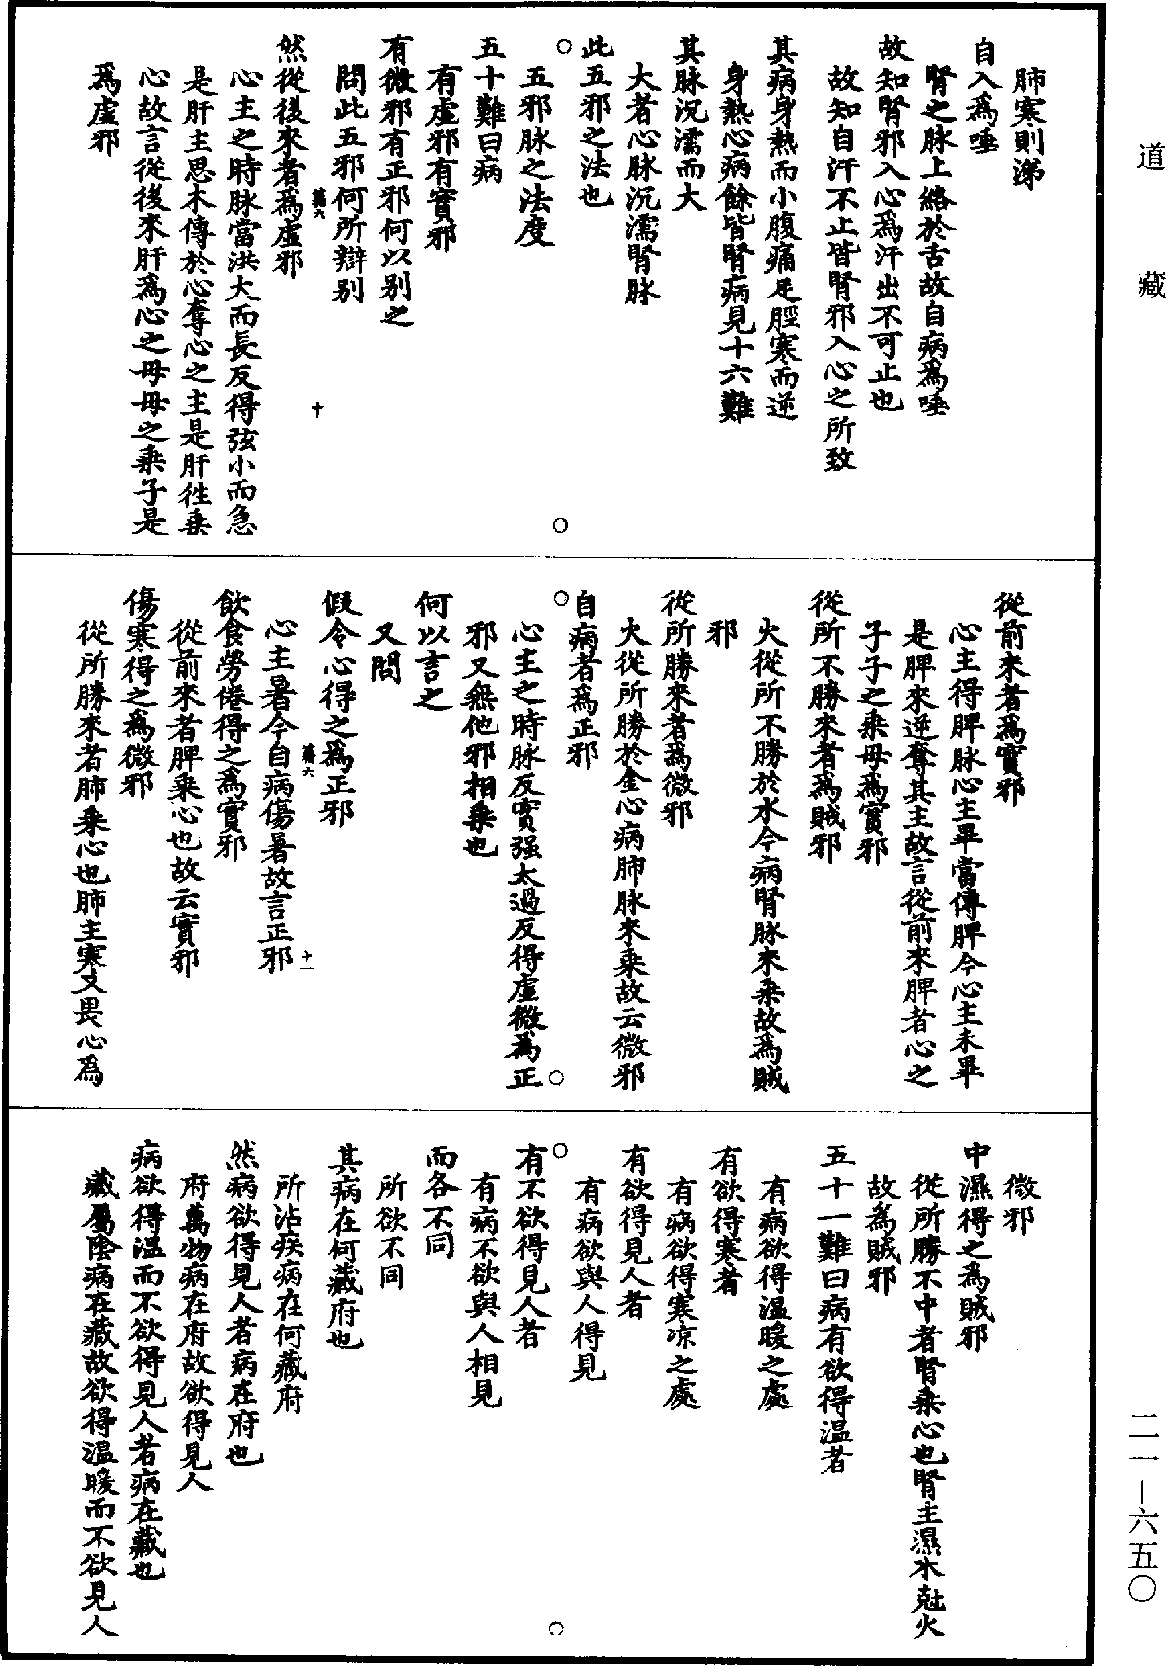 道藏
肺寒則涕
自入爲唾
腎之脉上絡於舌故自病爲唾
故知腎邪入心爲汗出不可止也
故知自汗不止皆腎邪入心之所致
其病身熱而小腹痛足脛寒而逆
身熱心病餘皆腎病見十六難
其脉沉濡而大
大者心脉沉濡腎脉
此五邪之法也
五邪脉之法度
五十難曰病
有虛邪有實邪
有微邪有正邪何以別之
問此五邪何所辯別
十
然從後來者爲虛邪
心主之時脉當洪大而長反得弦小而急
是肝主思木傳於心奪心之主是肝徃乗
心故言從後來肝爲心之母母之乗子是
爲虛邪
從前來者爲實邪
心主得脾脉心主畢當傳脾今心主未畢
是脾來逆奪其主故言從前來脾者心之
子子之乗母爲實邪
從所不勝來者爲賊邪
火從所不勝於水今病腎脉來乗故爲賊
邪
從所勝來者爲微邪
火從所勝於金心病肺脉來乗故云微邪
自病者爲正邪
心主之時脉反實强太過反得虛微爲正
邪又無他邪相乗也
何以言之
又問
假令心得之爲正邪
十一
心主暑今自病傷暑故言正邪
飲食勞倦得之爲實邪
從前來者脾乗心也故云實邪
傷寒得之爲微邪
從所勝來者肺乗心也肺主寒又畏心爲
微邪
中濕得之爲賊邪
從所勝不中者腎乗心也腎主濕水尅火
故爲賊邪
五十一難曰病有欲得温者
有病欲得温暖之處
有欲得寒者
有病欲得寒凉之處
有欲得見人者
有病欲與人得見
有不欲得見人者
有病不欲與人相見
而各不同
所欲不同
其病在何藏府也
所沾疾病在何藏府
然病欲得見人者病在府也
府萬物病在府故欲得見人
病欲得温而不欲得見人者病在藏也
藏屬陰病在藏故欲得温暖而不欲見人
二一—六五〇